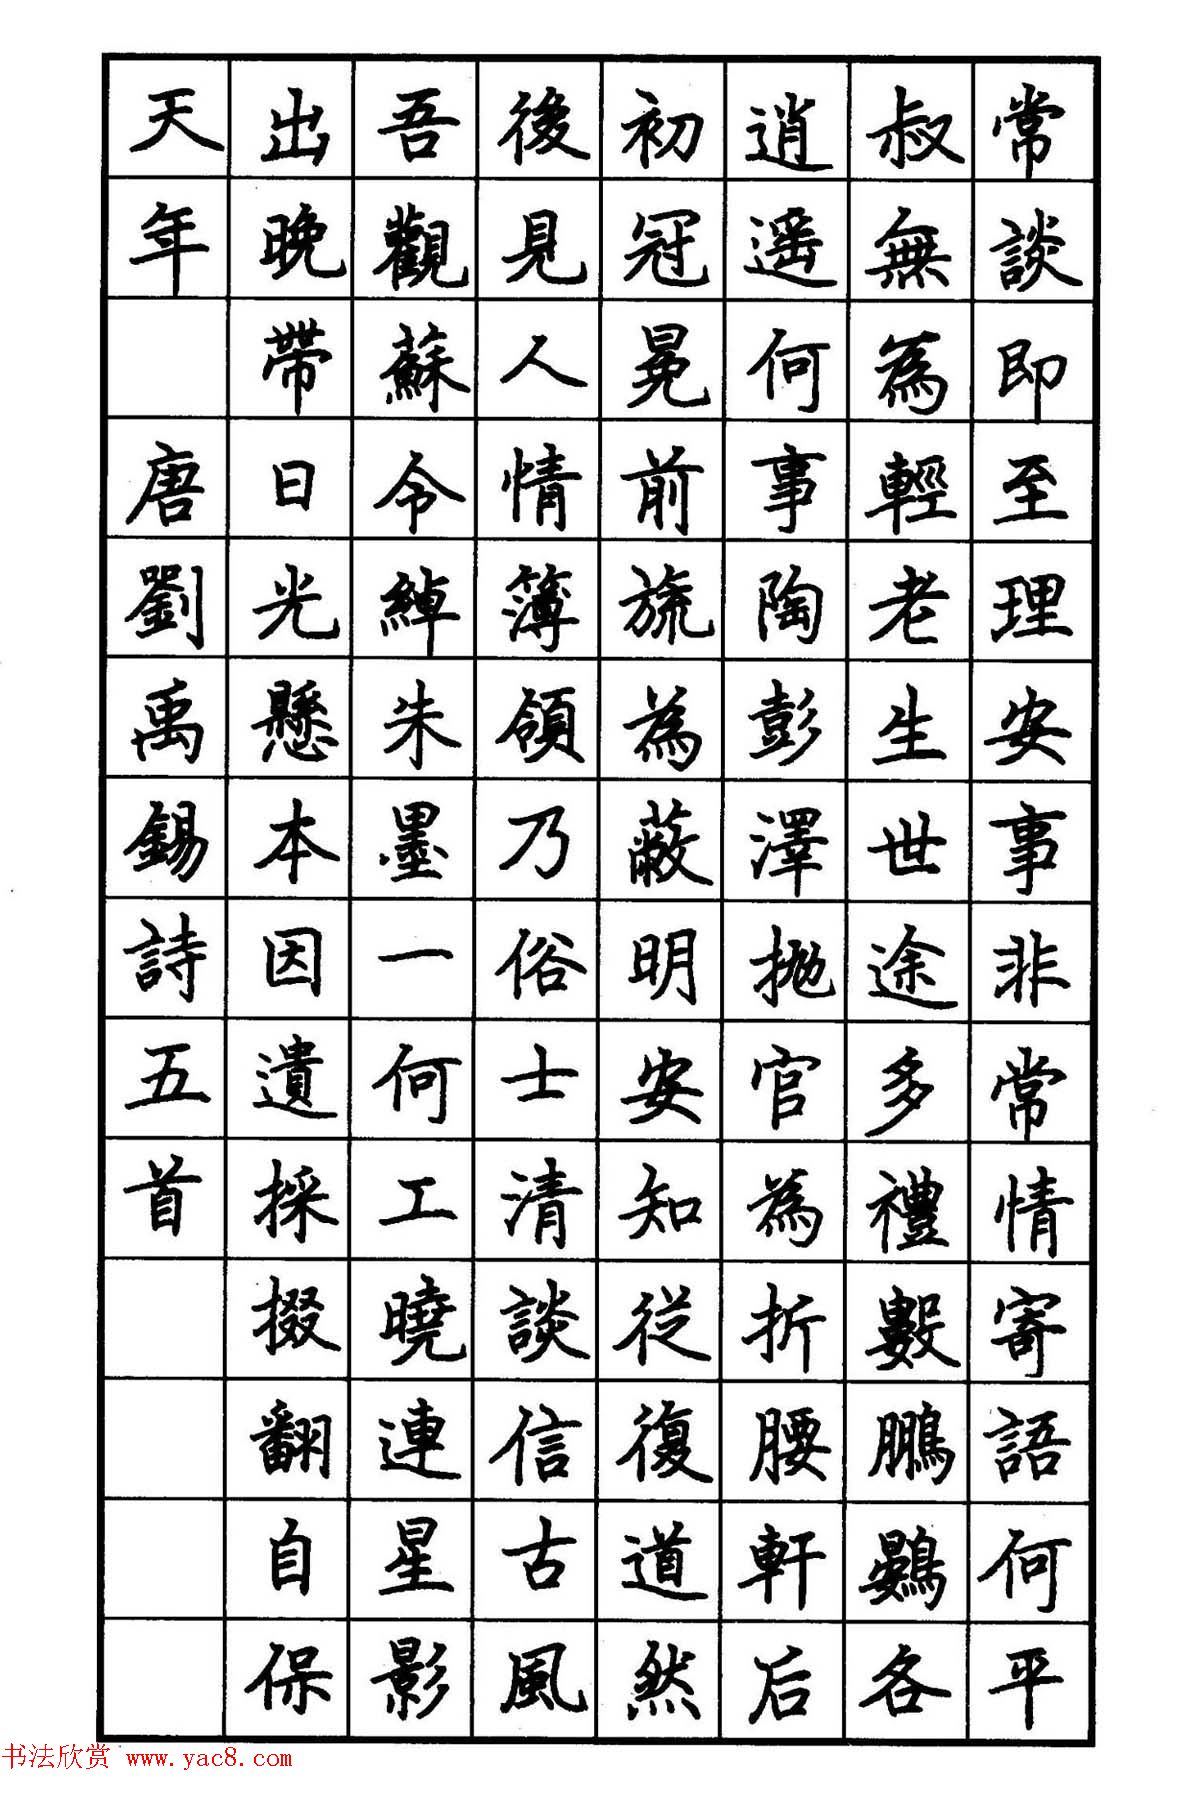 常談即至理安事非常情寄語何平
叔無為輕老生世途多禮數鵬鷃各
逍遥何事陶彭澤抛官為折腰軒后
初冠冕前旒為蔽明安知從復道然
後見人情簿領乃俗士清談信古風
吾觀蘇令綽朱墨一何工曉連星影
出晚帶日光懸本因遺採掇翻自保
天年 唐劉禹錫詩五首
书法欣赏 www.yac8.com